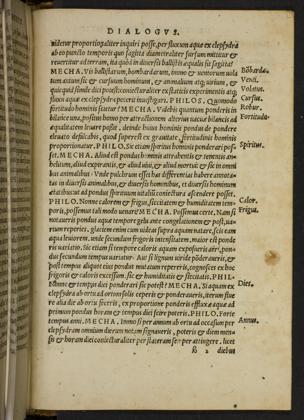 DIALOGVS.
videtur proportionaliter inquiri posse, per fluxum aquæ ex clepsydra
ab eo puncto temporis quo sagitta diametraliter sursum mittitur &
revertitur ad terram, ita quod in diversis balistis æqualis sit sagitta?
MECHA. Vis balistarum, bombardarum, immo & ventorum vola
tum atque, sic & cursuum hominum, & animalium atque virium, &
quicquid simile dici posset conjecturaliter ex staticis experimentis atque
fluxu aquæ ex clepsydra poterit investigari. PHILOS. Quomodo
fortitudo hominis sciretur? MECHA. Videbis quantum ponderis in
bilance una, positus homo per attractionem alterius vacuæ bilancis ad
æqualitem levare possit, deinde huius hominis pondus de pondere
elevato defalcabis, quod superest & ex quantitate, fortitudinis hominis
proportionatur. PHILO. Sic etiam spiritus hominis ponderari pos-
set. MECHA. Aliud est pondus hominis attrahentis & tenentis an-
helitum, aliud exspirantis, & aliud vivi, & aliud mortui & sic in omni
bus animalibus. Unde pulchrum esset has differentias habere annota-
tas in diversis animalibus, & diversis hominibus, & diversis hominum
ætatibus ut ad pondus spirituum vitaliū coniectura ascendere posset.
PHILO. Nonne calorem & frigus, siccitatem & humiditatem tem-
poris, possemus tali modo venari? MECHA. Possemus certe, Nam si
notaveris pondus aquæ tempore gelu ante congelationem & post, va-
rium reperies, glaciem enim cum videas supra aquam natare, scis eam
aqua leviorem, unde secundum frigoris intensitatem, maior est ponde
ris varietas. Sic etiam si tempore caloris aquam exposueris aeri, pon-
dus secundum tempus variatur. Aut si lignum viride ponderaveris, &
post tempus aliquot eius pondus mutatum repereris, cognosces ex hoc
frigoris & caloris excessum, sic & humiditatis & siccitatis. PHIL.
Nonne & tempus diei ponderari sic potest? MECHA. Si aquam ex
clepsydra ab ortu ad ortum solis ceperis & ponderaveris, iterum flue
re alia die ab ortu siceris, ex proportione ponderis effluxæ aquæ ad
primum pondus horam & tempus diei scire poteris. PHILO. Forte
tempus anni. MECHA. Immo si per annum ab ortu ad occasum per
clepsydram omnium dierum notam signaveris, poteris & diem men-
sis & horam diei conjecturaliter per stateram semper attingere, licet
diebus
Bōbarda.
Venti.
Volatus.
Cursus.
Robur.
Fortitudo.
Spiritus.
Calor.
Frigus.
Dies.
Annus.